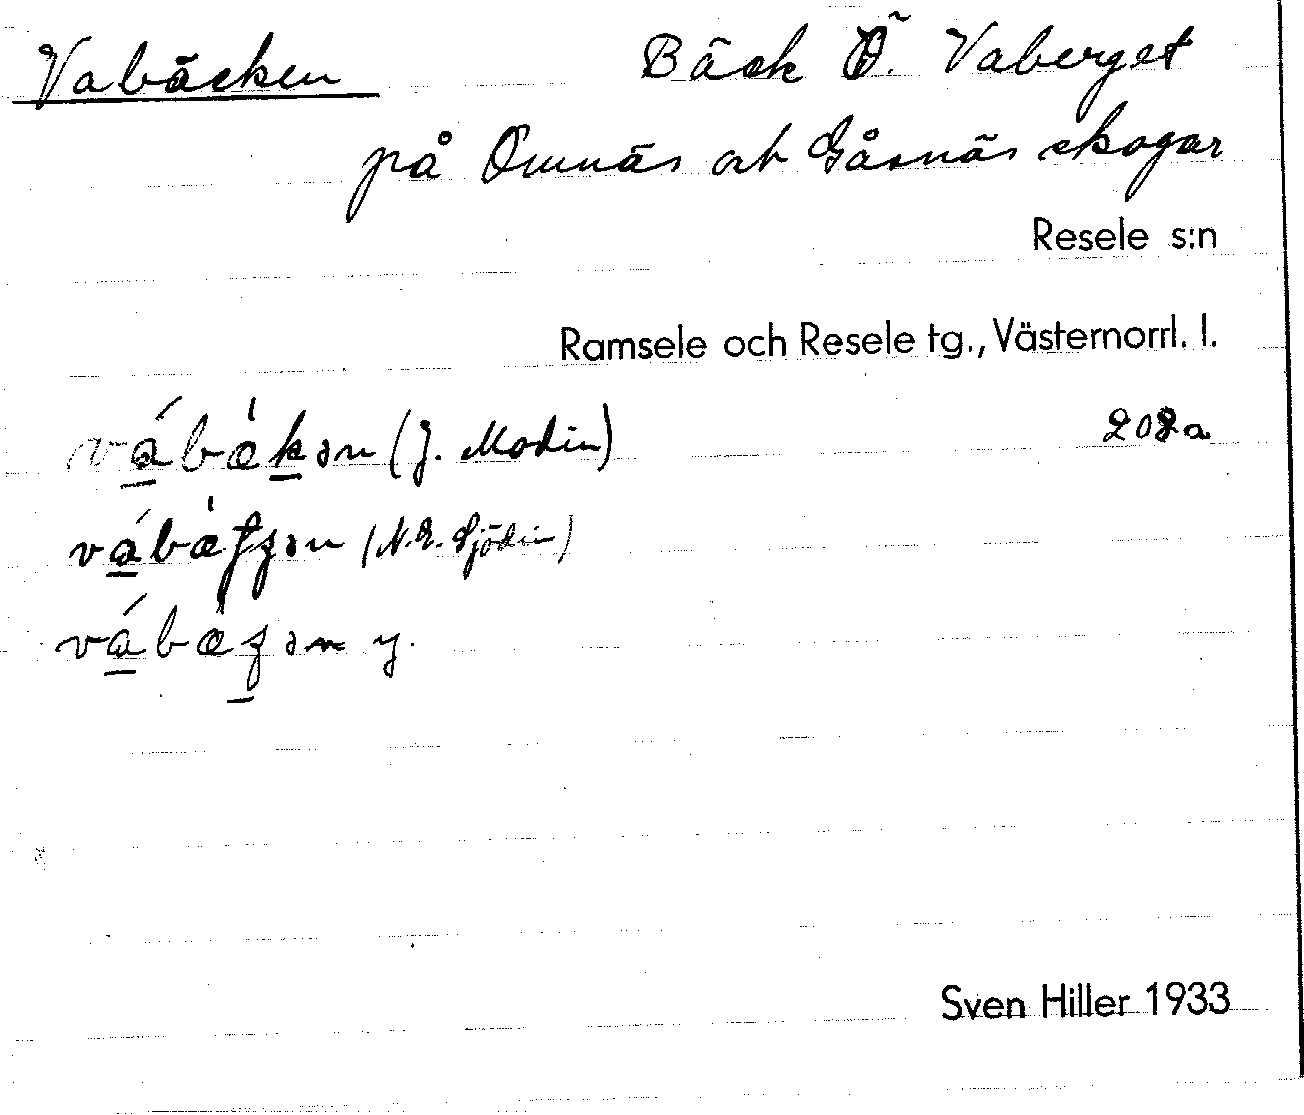 Vabäcken Bäck Ö. Vaberget
på Omnäs och Gåsnäs skogar
Resele s:n
Ramsele och Resele tg., Västernorrl. l.
(J. Modin) 202a
(N. E. Sjödin)
y.
Sven Hiller 1933